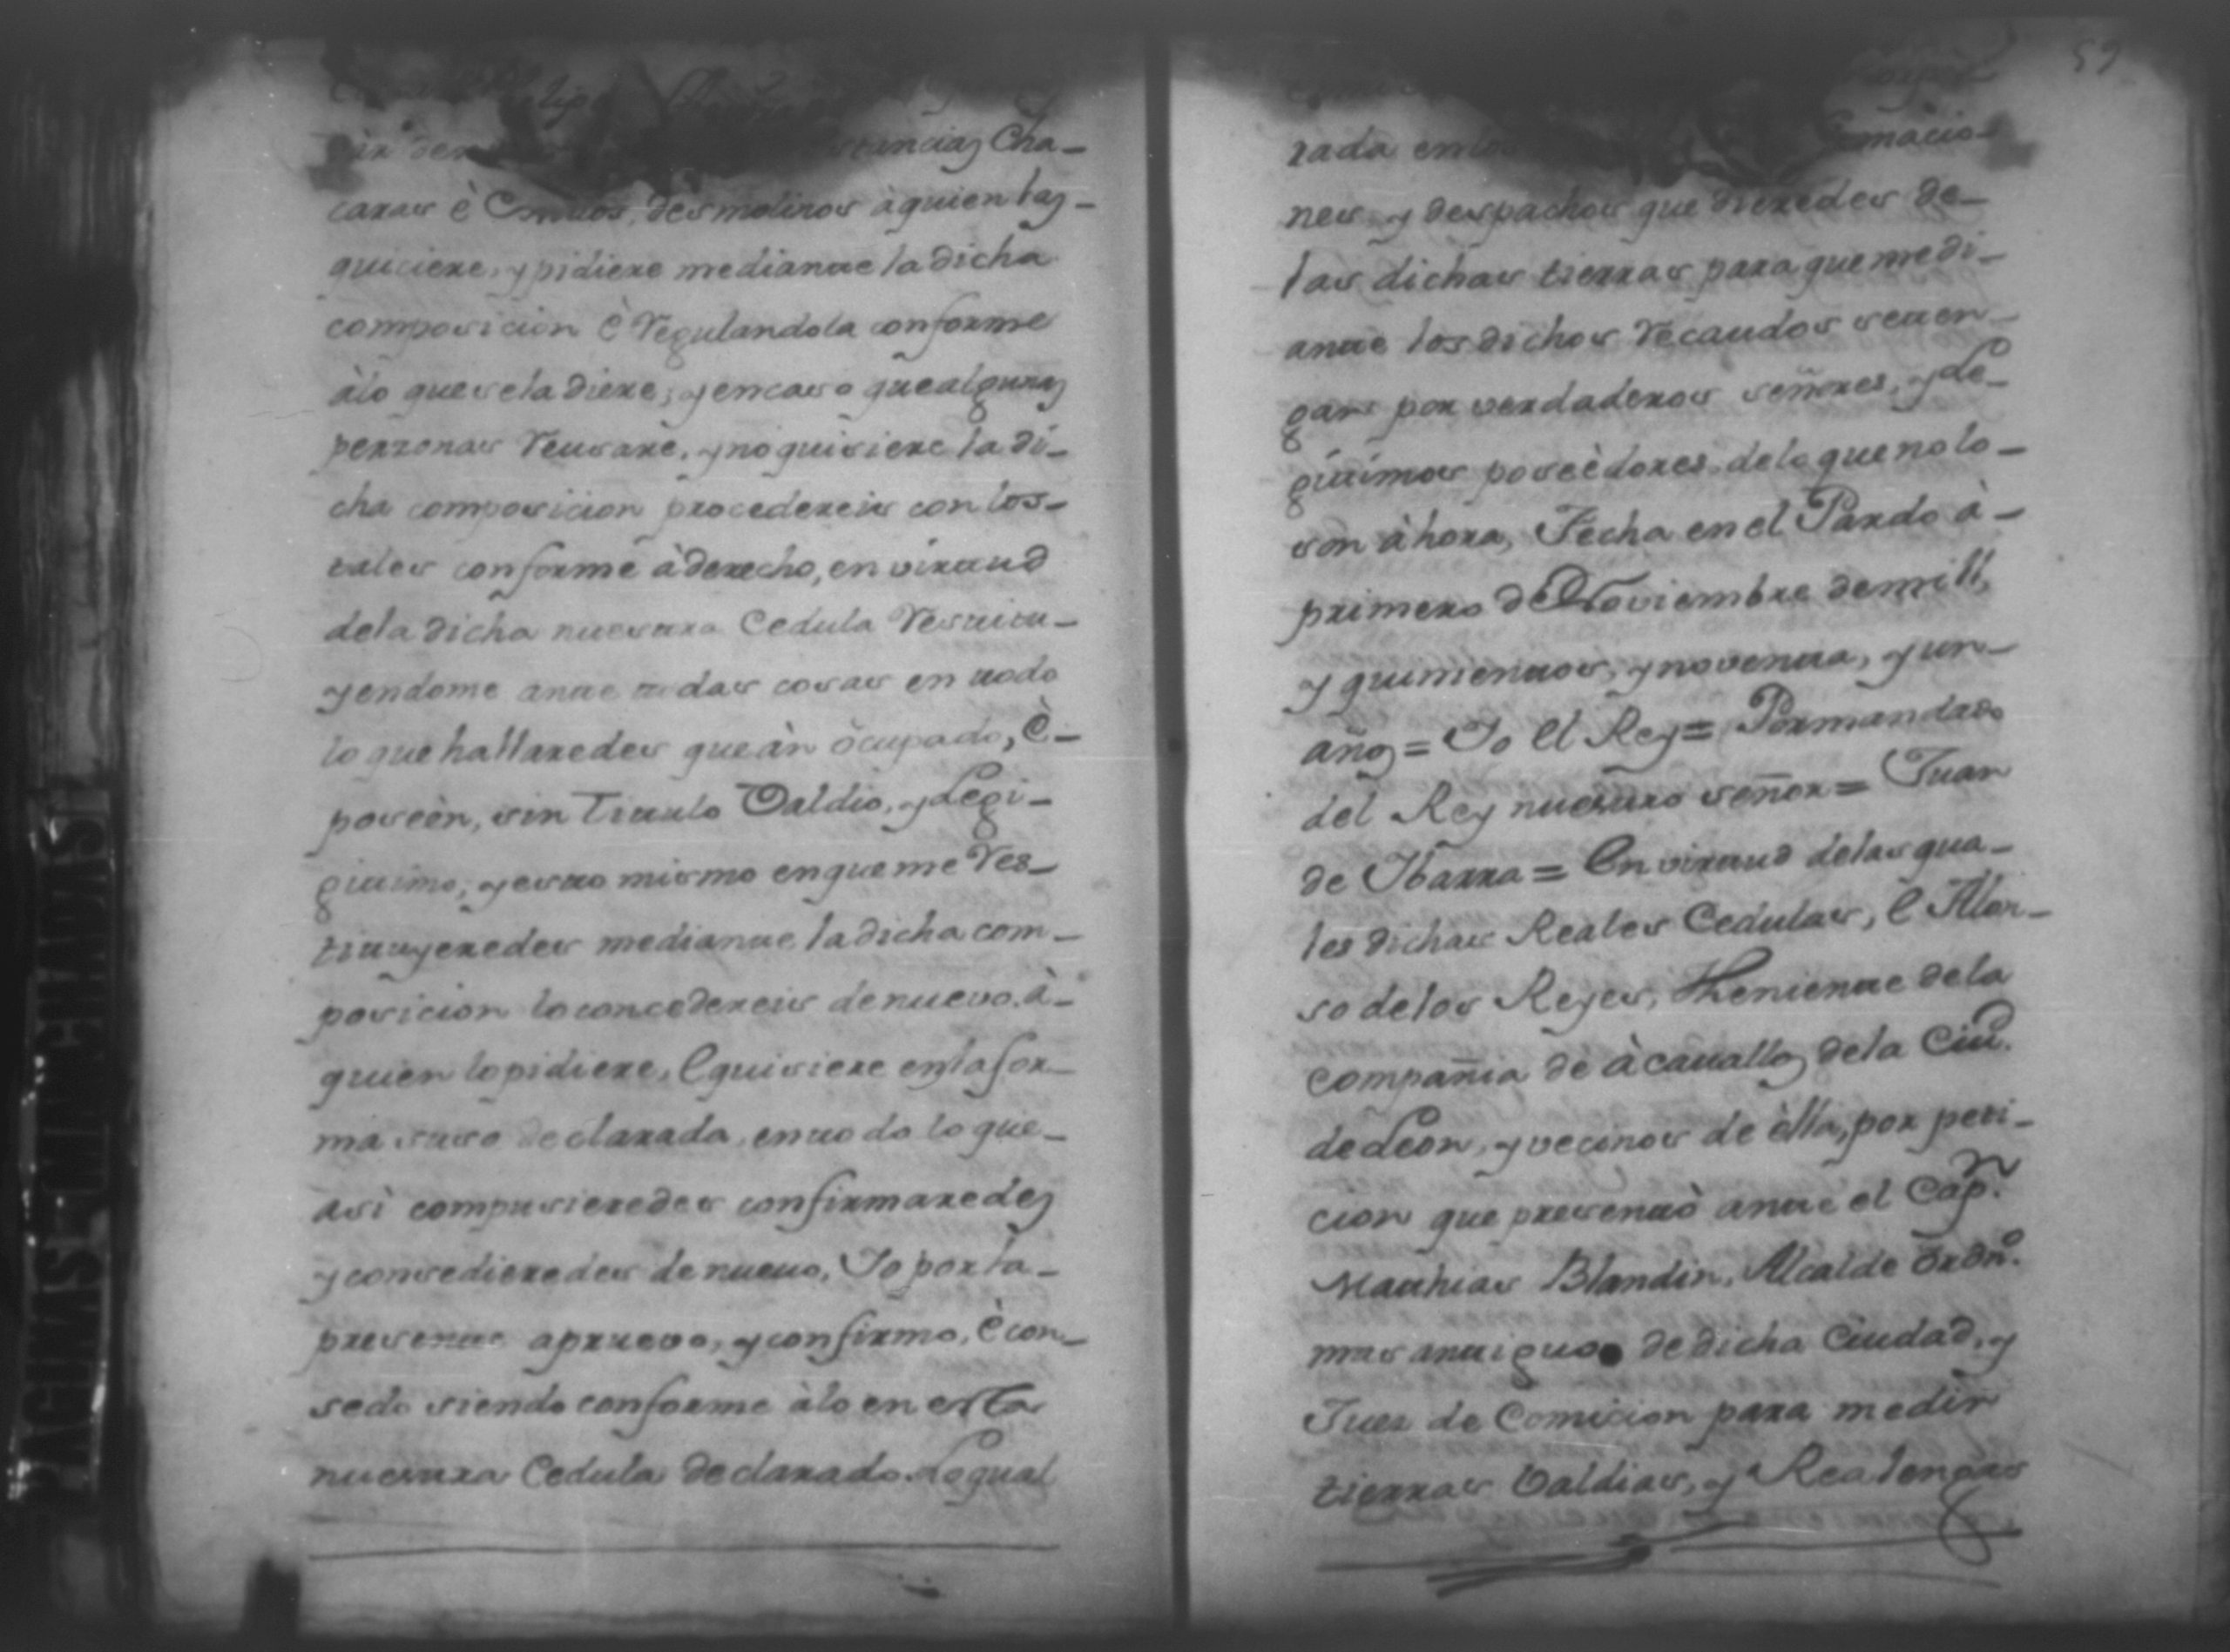 tancias Cha-
caras è sitios, des molinos à quien las-
quiciere, y pidiere mediante la dicha
composicion è regulandola conforme
àlo que se la diere; y en caso que algunas
perzonas recusare, y no quisiere la di-
cha composicion procedereis con los-
tales conforme à derecho, en virtud
dela dicha nuestra Cedula restitu-
yendome ante todas cosas en todo
lo que hallaredes que àn òcupado, è-
poseèn, sin Titulo Valdio, y Legi-
gitimo; y esto mismo en que me res-
tituyeredes mediante la dicha com-
posicion lo concedereis de nuevo, à-
quien lo pidiere, è quisiere en la for-
ma suso declarada, en todo lo que-
asì compusieredes confirmaredes
y consedieredes de nuevo, Yo por la-
presente apruevo, y confirmo, è con-
sedo siendo conforme àlo en esta
nuestra Cedula declarado. Lo qual
59
rada en los macio-
nes, y despachos que dieredes de-
las dichas tierras para que medi-
ante los dichos recaudos se ten-
gan por verdaderos señores, y Le-
gitimos poseèdores, de lo que no lo-
son àhora, Fecha en el Pardo à-
primero de Noviembre de mill,
y quinientos, y noventa, y un-
años = Yo el Rey = Por mandado
del Rey nuestro señor = Juan
de Ybarra = En virtud de las qua-
les dichas Reales Cedulas, è Alon-
so de los Reyes, Theniente de la
compañia de à cauallos de la Ciud.
de Leon, y vecinos de èlla, por peti-
cion que presentò ante el Capn.
Matthias Blandin, Alcalde Ordno.
mas antiguo de dicha Ciudad, y
Juez de Comicion para medir
tierras Valdias, y Realengas